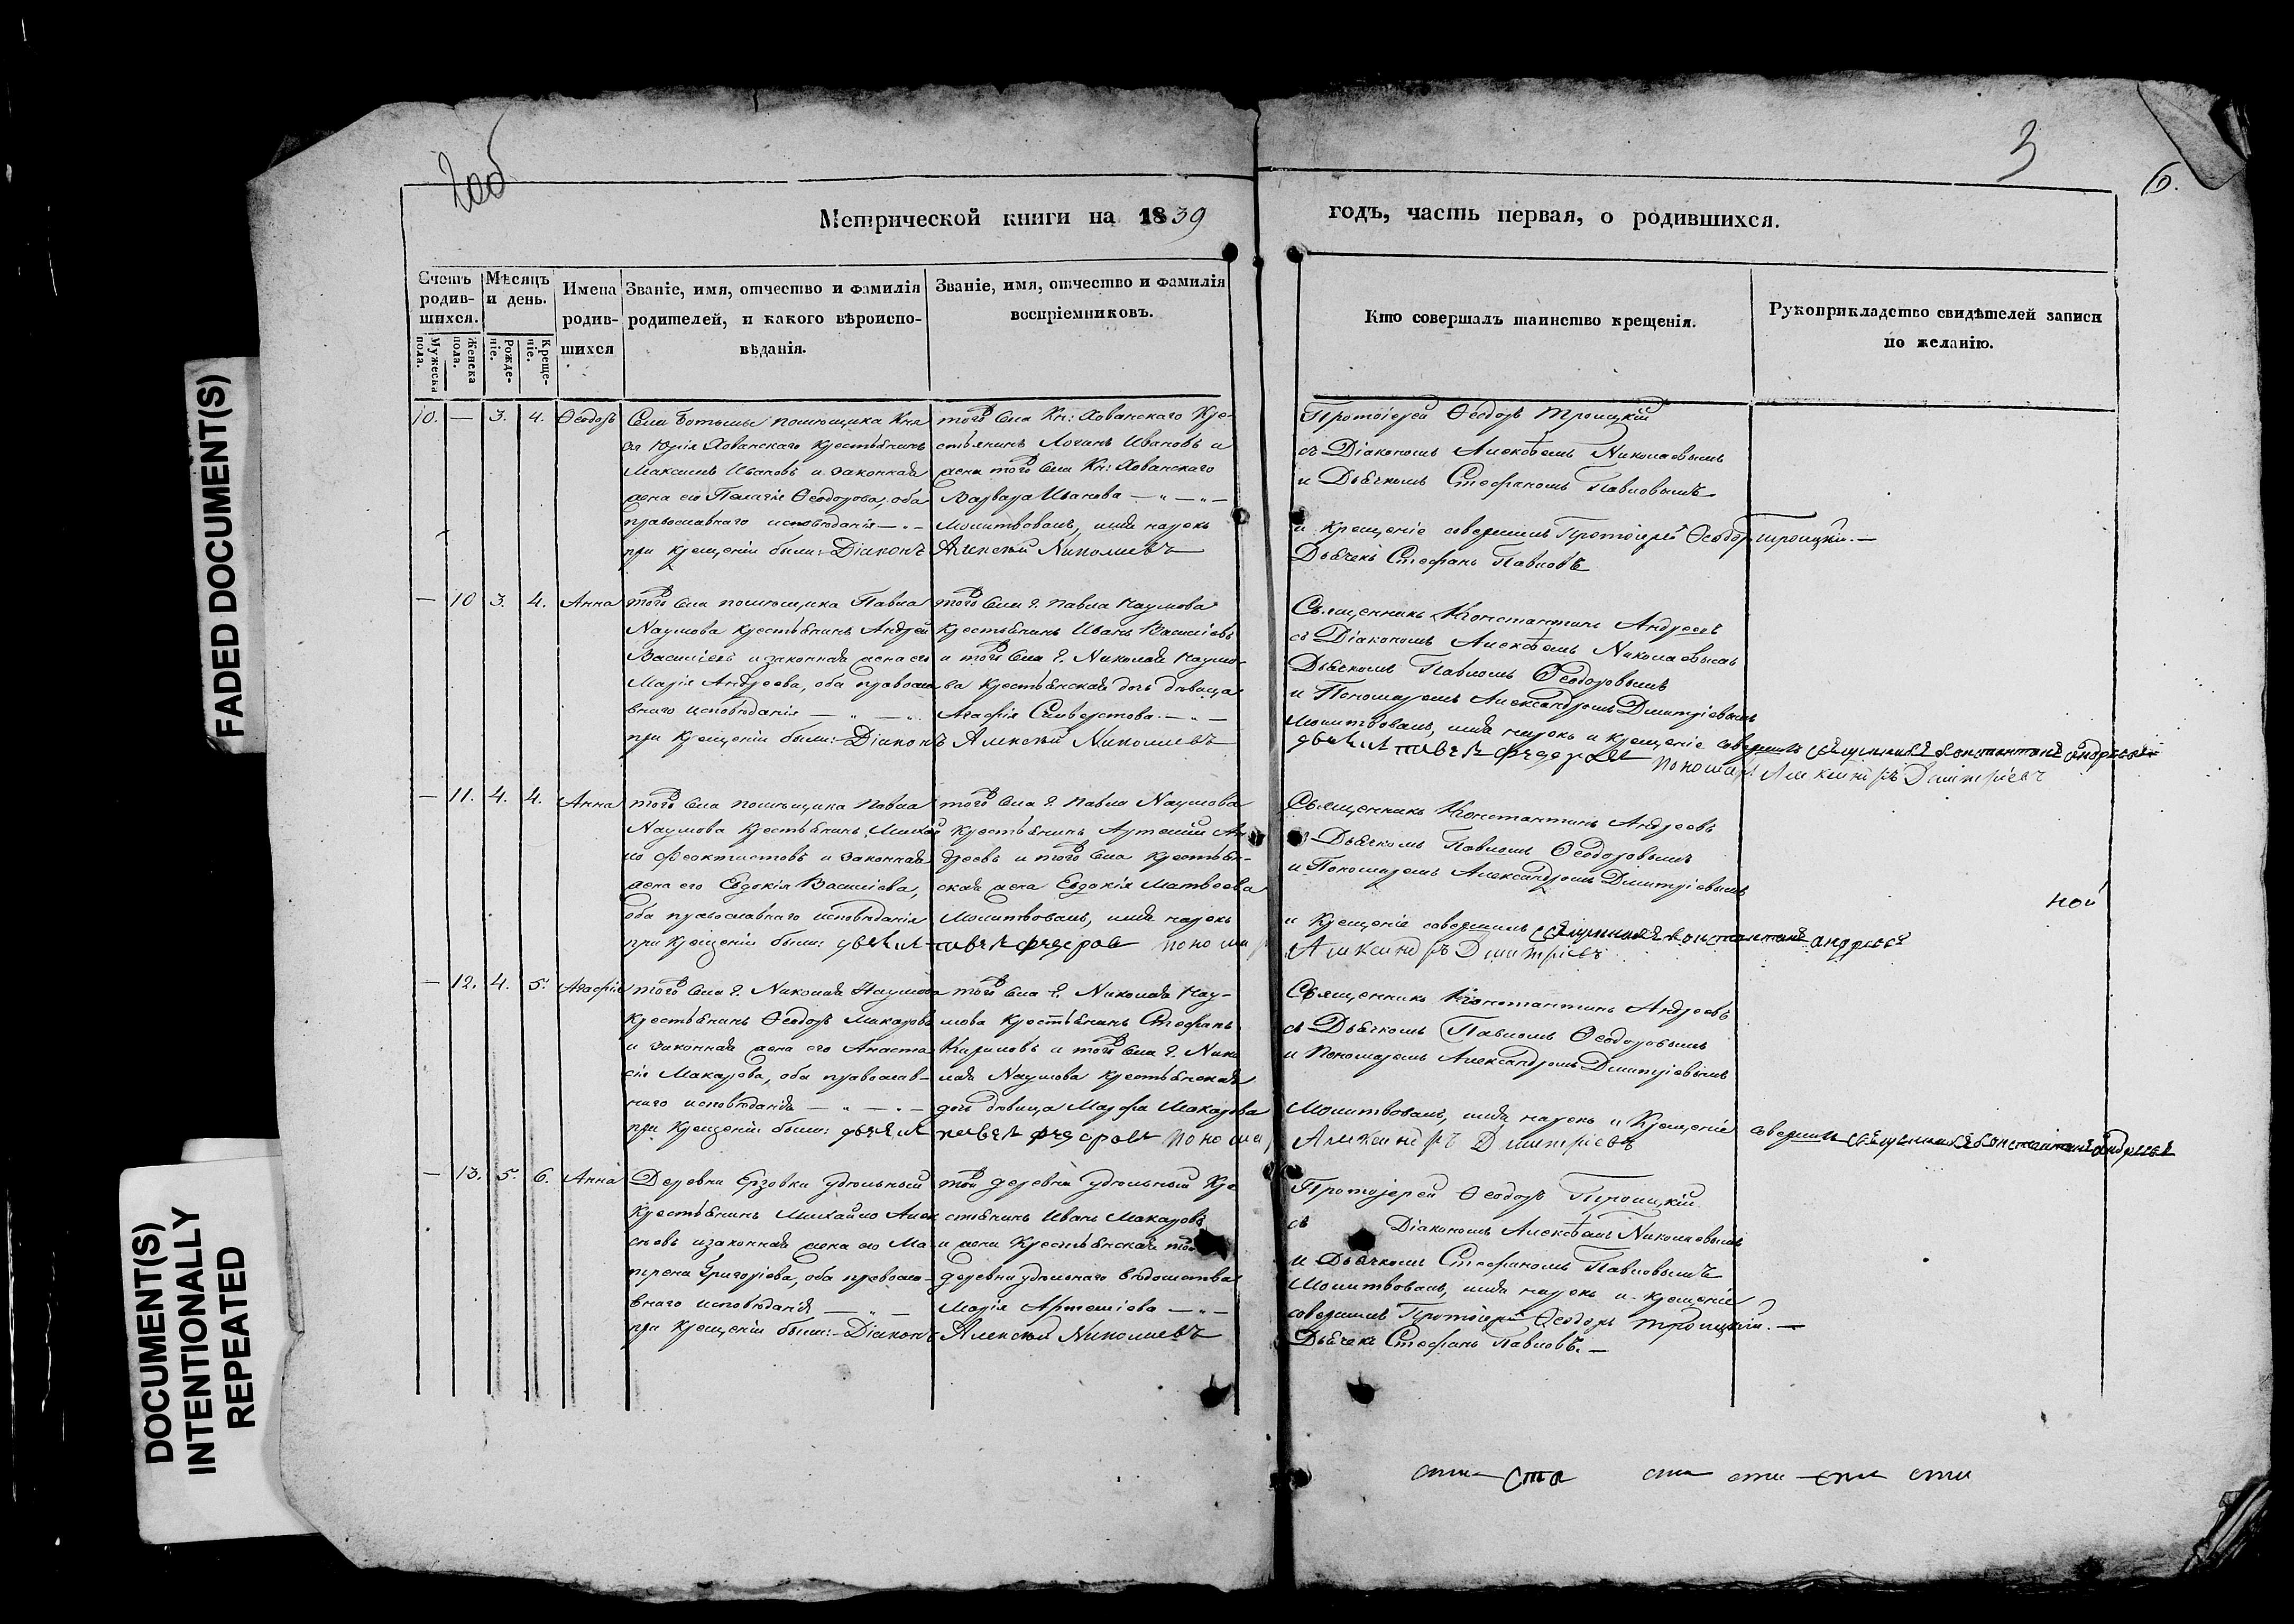 2об
3
6.
Метрической книги на 1839
годъ, часть первая, о родившихся.
Счетъ родив-шихся.
Мужеска пола.
Женска пола.
Мѣсяцъ и день.
Рожде-ніе.
Креще-ніе.
Имена родив-шихся
Званіе, имя, отчество и фамилія
родителей, и какого вѣроиспо-
вѣданія.
Званіе, имя, отчество и фамилія
воспріемниковъ.
Кто совершалъ таинство крещенія.
Рукоприкладство свидѣтелей записи
по желанію.
10. — 3. 4. Ѳеодоръ
Села Ботьмы помѣщика Кня
зя Юрія Хованскаго крестьянинъ
Максимъ Ивановъ и законная
жена его Пелагія Ѳеодорова, оба
православнаго исповѣданія —„—
при крещеніи были: Діаконъ
того села Кн: Хованскаго Кре-
стьянинъ Логинъ Ивановъ и
жена того села Кн: Хованскаго
Варвара Иванова —„—„—
Молитвовалъ, имя нарекъ
Алексѣй Николаевъ
Протоіерей Ѳеодоръ Троицкій
съ Діакономъ Алексѣемъ Николаевымъ
и Дьячкомъ Стефаномъ Павловымъ
и крещеніе совершилъ Протоіерей Ѳеодоръ Троицкій. —
Дьячекъ Стефанъ Павловъ
— 10 3. 4. Анна
того села помѣщика Павла
Наумова крестьянинъ Андрей
Васильевъ и законная жена его
Марія Андреева, оба правосла
внаго исповѣданія —„—„
при крещеніи были: Діаконъ
того села г. Павла Наумова
крестьянинъ Иванъ Васильевъ
и того села г. Николая Наумо
ва крестьянская дочь дѣвица
Агафія Силверстова. —„—
Алексѣй Николаевъ
Священникъ Константинъ Андреевъ
съ Діакономъ Алексѣемъ Николаевымъ
Дьячкомъ Павломъ Ѳеодоровымъ
и Пономаремъ Александромъ Дмитріевымъ
Молитвовалъ, имя нарекъ и крещеніе совершилъ священникъ константинъ андреевъ
дьячекъ павелъ федоровъ пономарь Александръ Дмитріевъ
— 11. 4. 4. Анна
того села помѣщика Павла
Наумова крестьянинъ Михай
ло Феоктистовъ и законная
жена его Евдокія Васильева,
оба православнаго исповѣданія
при крещеніи были: дьячекъ
того села г. Павла Наумова
крестьянинъ Артемій Ан
дреевъ и того села крестьян-
ская жена Евдокія Матвеева
Молитвовалъ, имя нарекъ
павелъ федоровъ пономарь
Священникъ Константинъ Андреевъ
съ Дьячкомъ Павломъ Ѳеодоровымъ
и Пономаремъ Александромъ Дмитріевымъ
ной
и крещеніе совершилъ священникъ константинъ андреевъ
Александръ Дмитріевъ
— 12. 4. 5. Агафія
того села г. Николая Наумова
крестьянинъ Ѳеодоръ Макаровъ
и законная жена его Анаста
сія Макарова, оба православ-
наго исповѣданія —„—„—
при крещеніи были: дьячекъ
того села г. Николая Нау-
мова крестьянинъ Стефанъ
Кириловъ и того села г. Нико
лая Наумова крестьянская
дочь дѣвица Марфа Макарова
павелъ федоровъ пономарь
Священникъ Константинъ Андреевъ
съ Дьячкомъ Павломъ Ѳеодоровымъ
и Пономаремъ Александромъ Дмитріевымъ
Молитвовалъ, имя нарекъ и крещеніе совершилъ священникъ константинъ андреевъ
Александръ Дмитріевъ
— 13. 5. 6. Анна
Деревни Ерзовки удѣльный
крестьянинъ Михайло Алек
сѣевъ и законная жена его Ма
трена Григорьева, оба правосла-
внаго исповѣданія —„—
при крещеніи были: Діаконъ
той деревни удѣльный Кре
стьянинъ Иванъ Макаровъ
и жена крестьянская той
деревни удѣльнаго вѣдомства
Марія Артемьева —„—
Алексѣй Николаевъ
Протоіерей Ѳеодоръ Троицкій
съ Діакономъ Алексѣемъ Николаевымъ
и Дьячкомъ Стефаномъ Павловымъ
Молитвовалъ, имя нарекъ и крещеніе
совершилъ Протоіерей Ѳеодоръ Троицкій. —
Дьячекъ Стефанъ Павловъ. —
ста
FADED DOCUMENT(S)
DOCUMENT(S)
INTENTIONALLY
REPEATED